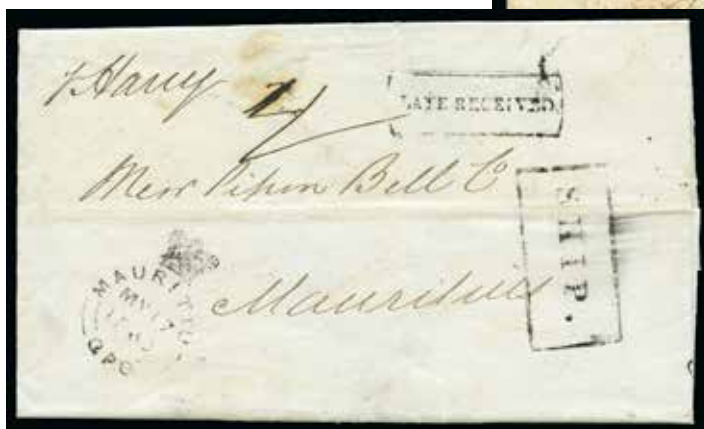 p Harry 2/
LATE RECEIVED.
Mess Pipon Bell Co
SHIP.
Mauritius
MAURITIUS
MY 17
GPO